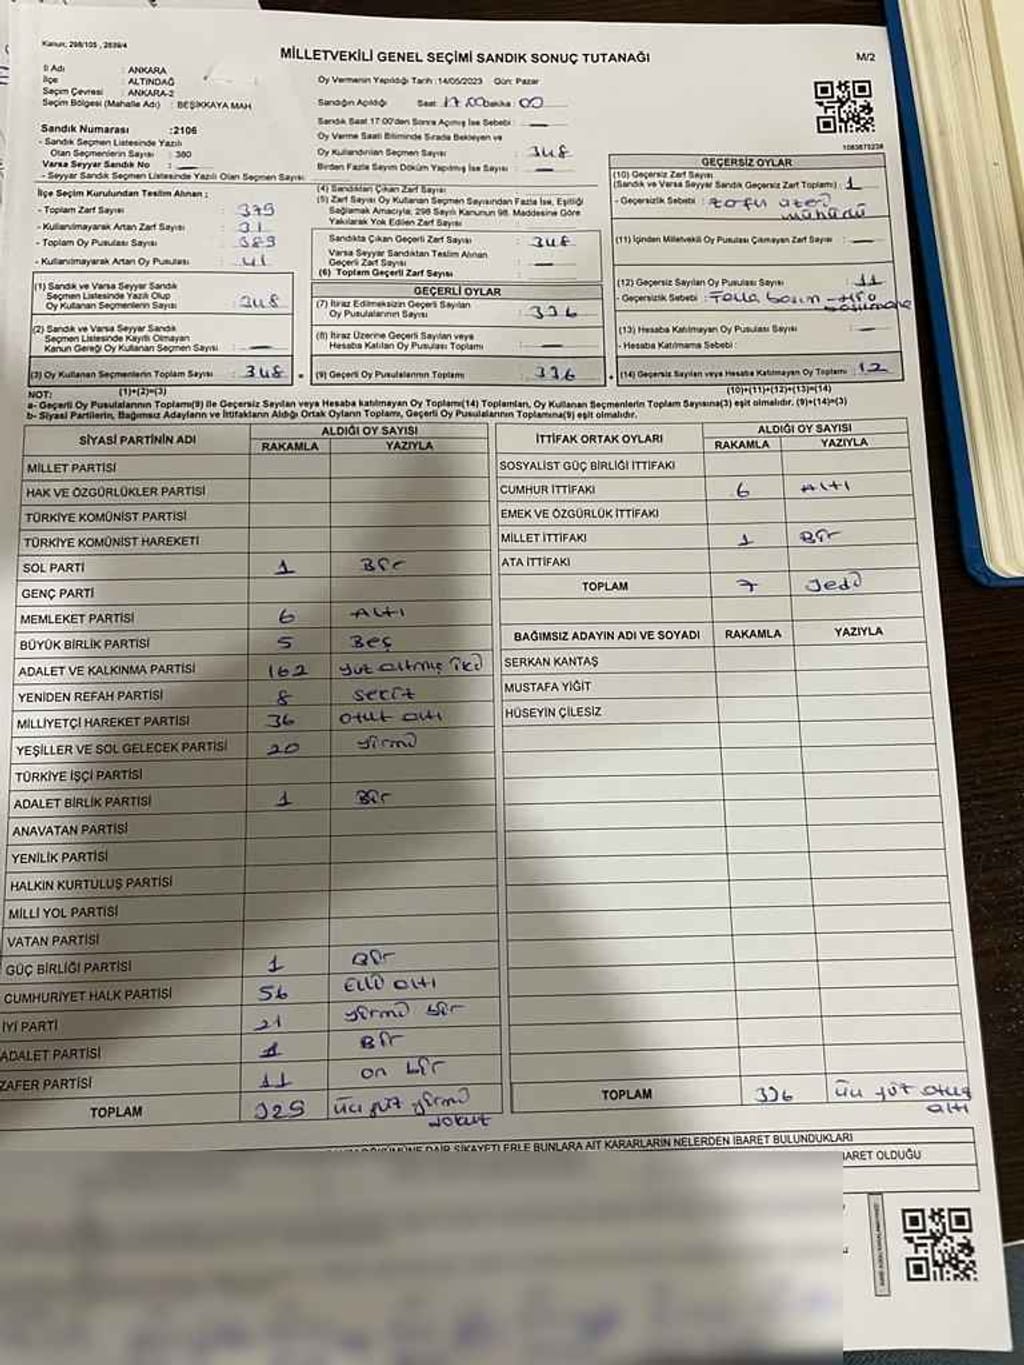 Kanun: 298/105, 2839/4
MİLLETVEKİLİ GENEL SEÇİMİ SANDIK SONUÇ TUTANAĞI
M/2
İl Adı : ANKARA
İlçe : ALTINDAĞ
Seçim Çevresi : ANKARA-2
Seçim Bölgesi (Mahalle Adı) : BEŞİKKAYA MAH
Oy Vermenin Yapıldığı Tarih :14/05/2023 Gün: Pazar
Sandığın Açıldığı Saat: 17.00 Dakika : 00
Sandık Saat 17:00'den Sonra Açılmış İse Sebebi : —
Oy Verme Saati Bitiminde Sırada Bekleyen ve
Oy Kullandırılan Seçmen Sayısı : 348
Birden Fazla Sayım Döküm Yapılmış İse Sayısı : —
1083873238
Sandık Numarası :2106
- Sandık Seçmen Listesinde Yazılı
Olan Seçmenlerin Sayısı : 380
Varsa Seyyar Sandık No : —
- Seyyar Sandık Seçmen Listesinde Yazılı Olan Seçmen Sayısı:
İlçe Seçim Kurulundan Teslim Alınan ;
- Toplam Zarf Sayısı : 379
- Kullanılmayarak Artan Zarf Sayısı : 31
- Toplam Oy Pusulası Sayısı : 389
- Kullanılmayarak Artan Oy Pusulası : 41
(1) Sandık ve Varsa Seyyar Sandık
Seçmen Listesinde Yazılı Olup
Oy Kullanan Seçmenlerin Sayısı : 348
(2) Sandık ve Varsa Seyyar Sandık
Seçmen Listesinde Kayıtlı Olmayan
Kanun Gereği Oy Kullanan Seçmen Sayısı : —
(3) Oy Kullanan Seçmenlerin Toplam Sayısı : 348
(1)+(2)=(3)
(4) Sandıktan Çıkan Zarf Sayısı :
(5) Zarf Sayısı Oy Kullanan Seçmen Sayısından Fazla İse, Eşitliği
Sağlamak Amacıyla; 298 Sayılı Kanunun 98. Maddesine Göre
Yakılarak Yok Edilen Zarf Sayısı :
Sandıkta Çıkan Geçerli Zarf Sayısı : 348
Varsa Seyyar Sandıktan Teslim Alınan
Geçerli Zarf Sayısı : —
(6) Toplam Geçerli Zarf Sayısı :
GEÇERLİ OYLAR
(7) İtiraz Edilmeksizin Geçerli Sayılan
Oy Pusulalarının Sayısı : 336
(8) İtiraz Üzerine Geçerli Sayılan veya
Hesaba Katılan Oy Pusulası Toplamı : —
(9) Geçerli Oy Pusulalarının Toplamı : 336
GEÇERSİZ OYLAR
(10) Geçersiz Zarf Sayısı
(Sandık ve Varsa Seyyar Sandık Geçersiz Zarf Toplamı) : 1
- Geçersizlik Sebebi :
(11) İçinden Milletvekili Oy Pusulası Çıkmayan Zarf Sayısı : —
(12) Geçersiz Sayılan Oy Pusulası Sayısı : 11
- Geçersizlik Sebebi :
(13) Hesaba Katılmayan Oy Pusulası Sayısı : —
- Hesaba Katılmama Sebebi :
(14) Geçersiz Sayılan veya Hesaba Katılmayan Oy Toplamı : 12
(10)+(11)+(12)+(13)=(14)
NOT:
a- Geçerli Oy Pusulalarının Toplamı(9) ile Geçersiz Sayılan veya Hesaba katılmayan Oy Toplamı(14) Toplamları, Oy Kullanan Seçmenlerin Toplam Sayısına(3) eşit olmalıdır. (9)+(14)=(3)
b- Siyasi Partilerin, Bağımsız Adayların ve İttifakların Aldığı Ortak Oyların Toplamı, Geçerli Oy Pusulalarının Toplamına(9) eşit olmalıdır.
SİYASİ PARTİNİN ADI ALDIĞI OY SAYISI
RAKAMLA YAZIYLA
MİLLET PARTİSİ
HAK VE ÖZGÜRLÜKLER PARTİSİ
TÜRKİYE KOMÜNİST PARTİSİ
TÜRKİYE KOMÜNİST HAREKETİ
SOL PARTİ 1 Bir
GENÇ PARTİ
MEMLEKET PARTİSİ 6 Altı
BÜYÜK BİRLİK PARTİSİ 5 Beş
ADALET VE KALKINMA PARTİSİ 162 yüz altmış iki
YENİDEN REFAH PARTİSİ 8 sekiz
MİLLİYETÇİ HAREKET PARTİSİ 36 otuz altı
YEŞİLLER VE SOL GELECEK PARTİSİ 20 yirmi
TÜRKİYE İŞÇİ PARTİSİ
ADALET BİRLİK PARTİSİ 1 Bir
ANAVATAN PARTİSİ
YENİLİK PARTİSİ
HALKIN KURTULUŞ PARTİSİ
MİLLİ YOL PARTİSİ
VATAN PARTİSİ
GÜÇ BİRLİĞİ PARTİSİ 1 Bir
CUMHURİYET HALK PARTİSİ 56 Elli altı
İYİ PARTİ 21 yirmi bir
ADALET PARTİSİ 1 Bir
ZAFER PARTİSİ 11 on bir
TOPLAM 329 üç yüz yirmi
dokuz
İTTİFAK ORTAK OYLARI ALDIĞI OY SAYISI
RAKAMLA YAZIYLA
SOSYALİST GÜÇ BİRLİĞİ İTTİFAKI
CUMHUR İTTİFAKI 6 Altı
EMEK VE ÖZGÜRLÜK İTTİFAKI
MİLLET İTTİFAKI 1 Bir
ATA İTTİFAKI
TOPLAM 7 Yedi
BAĞIMSIZ ADAYIN ADI VE SOYADI RAKAMLA YAZIYLA
SERKAN KANTAŞ
MUSTAFA YİĞİT
HÜSEYİN ÇİLESİZ
TOPLAM 336 üç yüz otuz
altı
ŞİKAYETLERLE BUNLARA AİT KARARLARIN NELERDEN İBARET BULUNDUKLARI
İBARET OLDUĞU